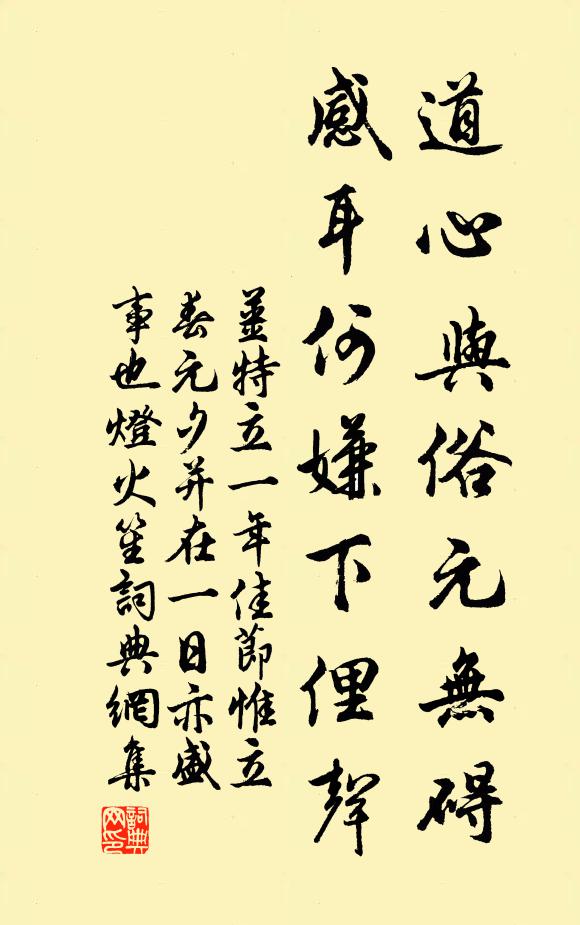 道心與俗元無碍
感耳何嫌下俚聲
姜特立一年佳節惟立
春元夕并在一日亦盛
事也燈火笙詞典網集
詞典
网印